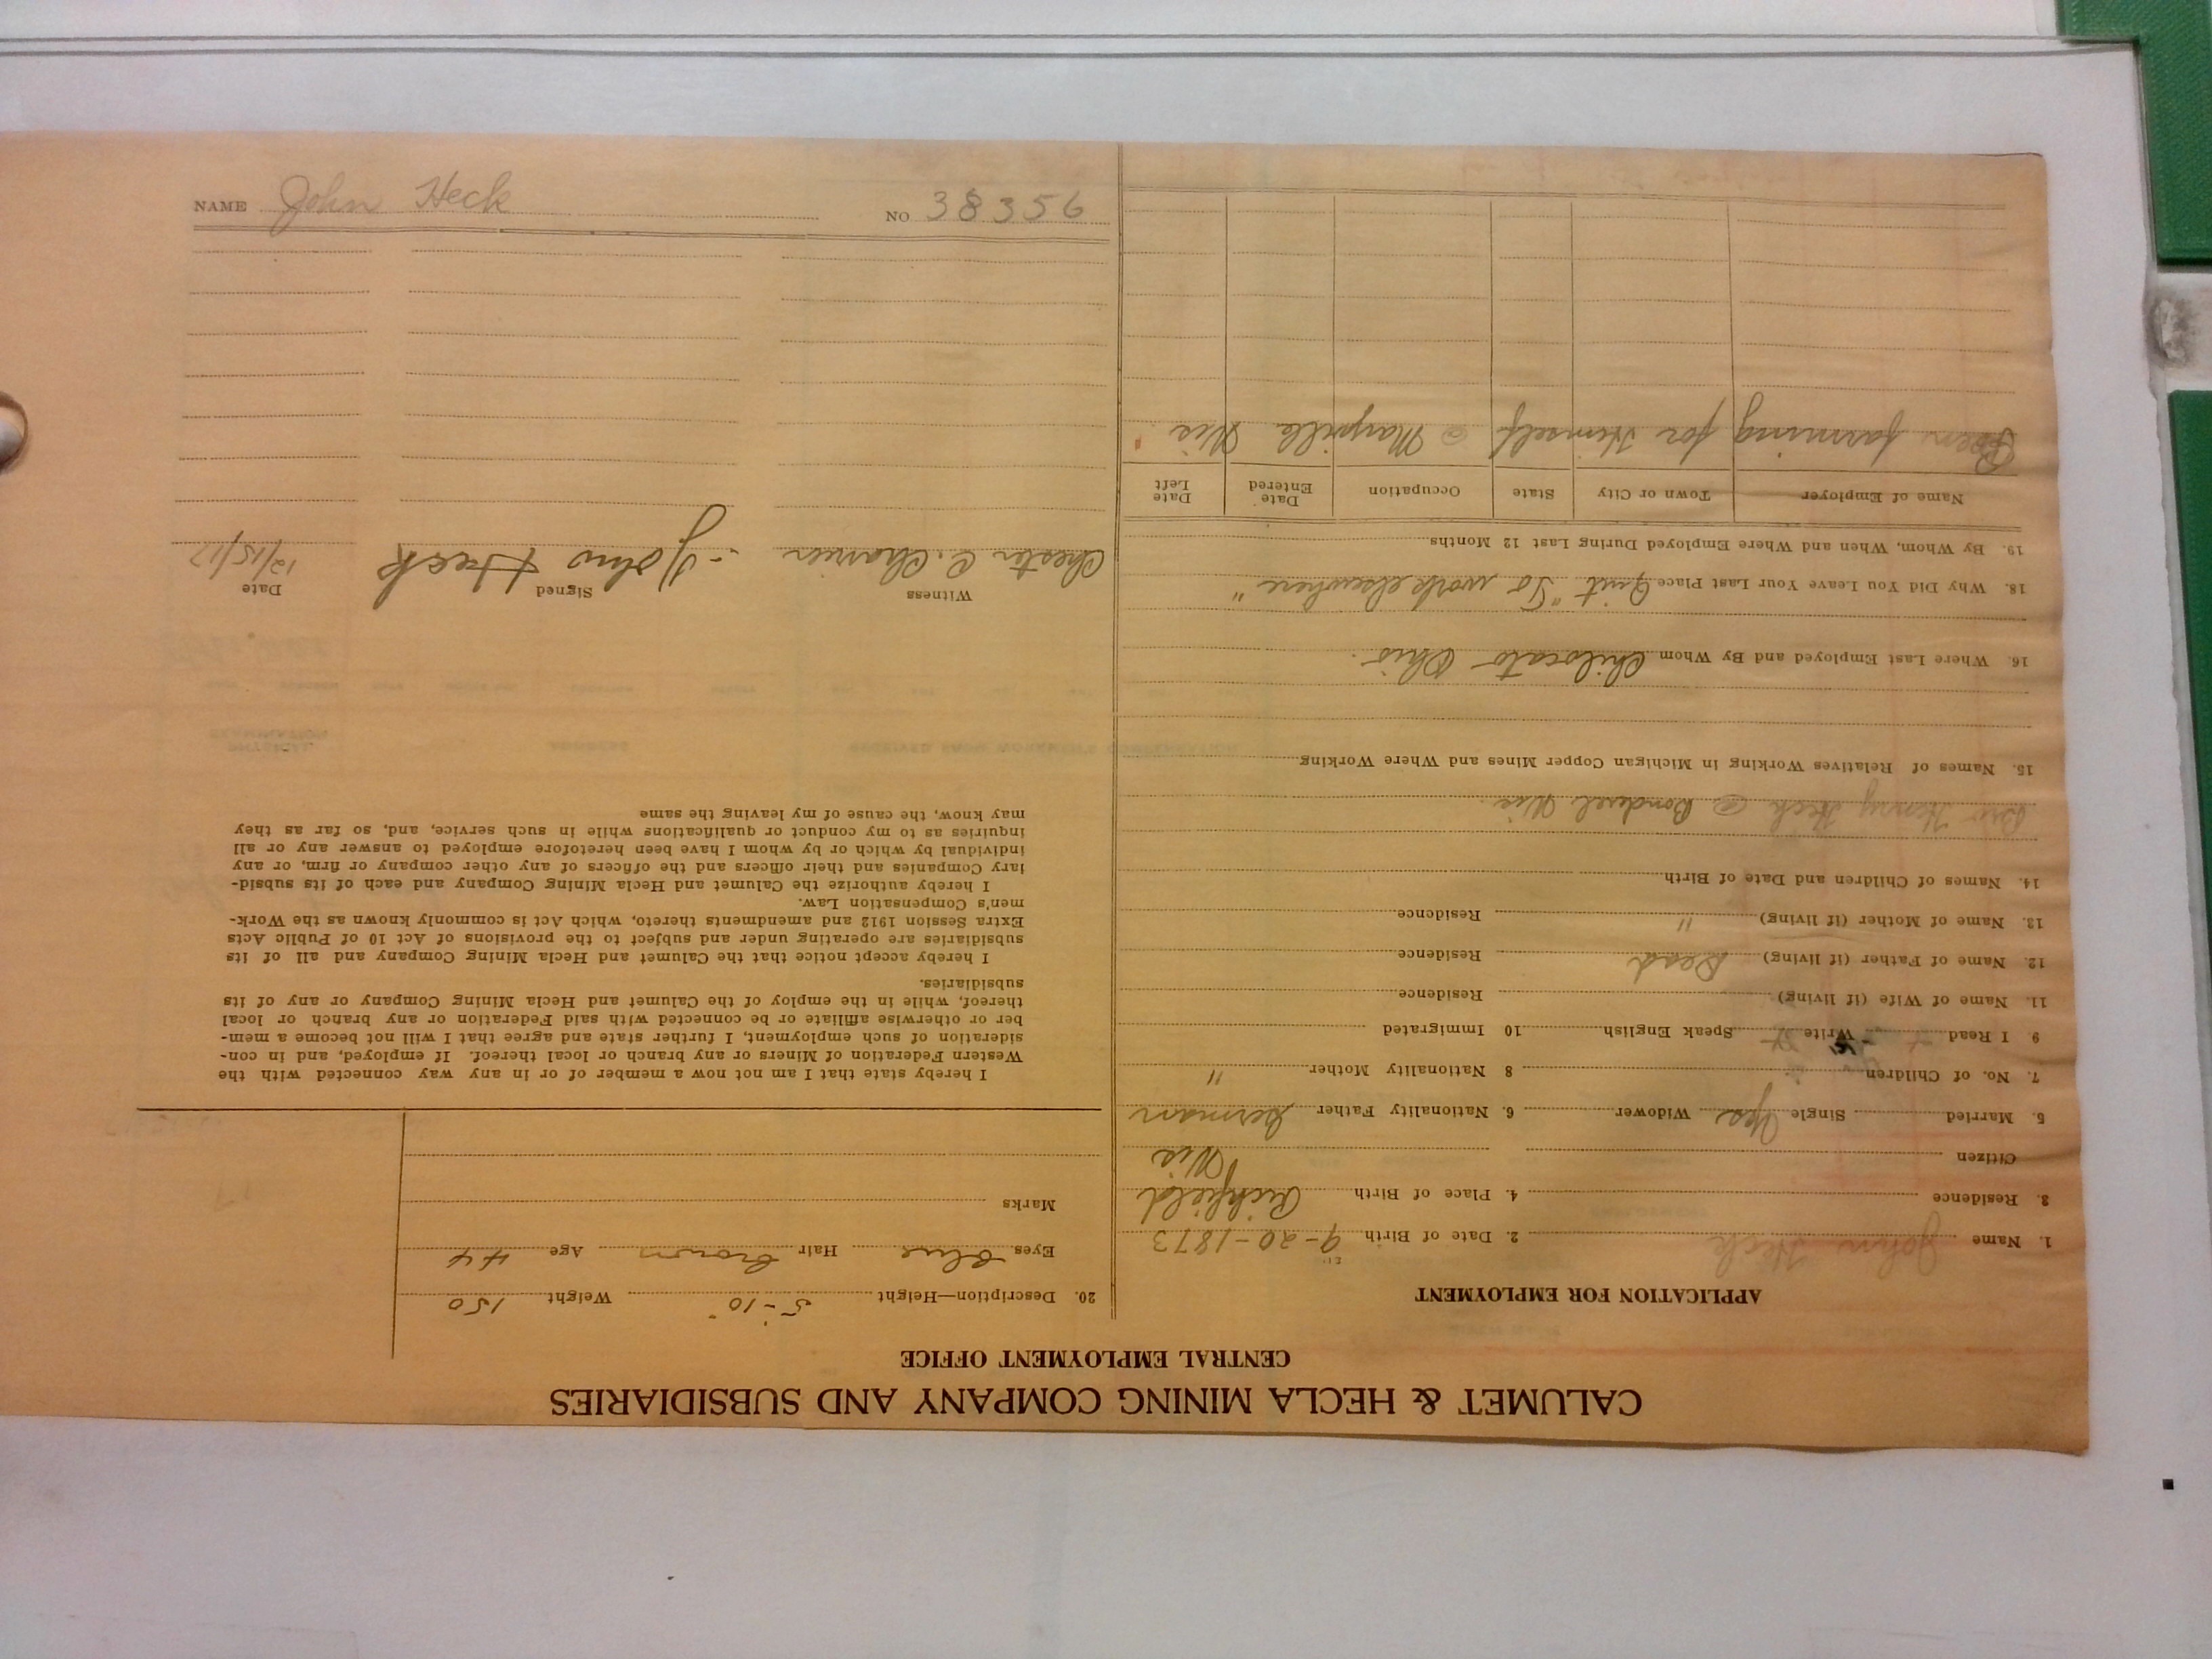 CALUMET & HECLA MINING COMPANY AND SUBSIDIARIES
CENTRAL EMPLOYMENT OFFICE
APPLICATION FOR EMPLOYMENT
1. Name John Heck 2. Date of Birth 9-20-1873
3. Residence 4. Place of Birth Richfield
Citizen Wis
5. Married Single Yes Widower 6. Nationality Father German
7. No. of Children 8 Nationality Mother "
9 I Read Write Speak English 10 Immigrated
11. Name of Wife (if living) Residence
12. Name of Father (if living) Dead Residence
13. Name of Mother (if living) " Residence
14. Names of Children and Date of Birth
Bro Henry Heck @ Bonduel Wis.
15. Names of Relatives Working in Michigan Copper Mines and Where Working
16. Where Last Employed and By Whom Chilocato Ohio.
18. Why Did You Leave Your Last Place Quit "To work elsewhere"
19. By Whom, When and Where Employed During Last 12 Months
Name of Employer Town or City State Occupation Date Entered Date Left
Been farming for Himself @ Mayville Wis
20. Description—Height 5-10" Weight 150
Eyes Blue Hair Brown Age 44
Marks
I hereby state that I am not now a member of or in any way connected with the
Western Federation of Miners or any branch or local thereof. If employed, and in con-
sideration of such employment, I further state and agree that I will not become a mem-
ber or otherwise affiliate or be connected with said Federation or any branch or local
thereof, while in the employ of the Calumet and Hecla Mining Company or any of its
subsidiaries.
I hereby accept notice that the Calumet and Hecla Mining Company and all of its
subsidiaries are operating under and subject to the provisions of Act 10 of Public Acts
Extra Session 1912 and amendments thereto, which Act is commonly known as the Work-
men's Compensation Law.
I hereby authorize the Calumet and Hecla Mining Company and each of its subsid-
iary Companies and their officers and the officers of any other company or firm, or any
individual by which or by whom I have been heretofore employed to answer any or all
inquiries as to my conduct or qualifications while in such service, and, so far as they
may know, the cause of my leaving the same
Witness Signed Date
Chester C. John Heck 12/15/17
NAME John Heck NO 38356